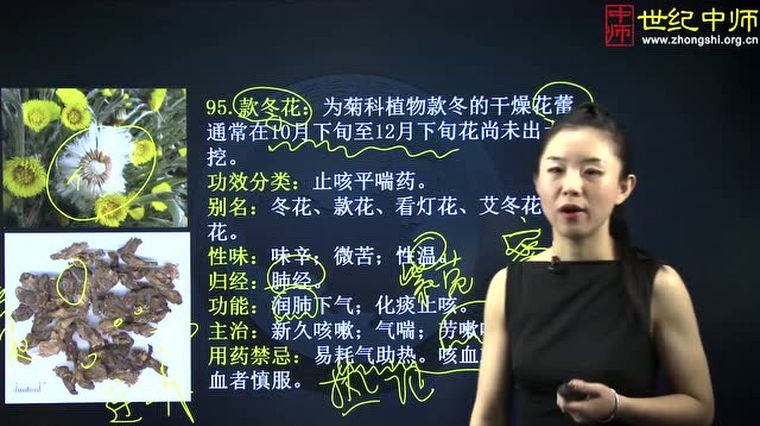 中师
世纪中师
www.zhongshi.org.cn
95.款冬花：为菊科植物款冬的干燥花蕾
通常在10月下旬至12月下旬花尚未出
挖。
功效分类：止咳平喘药。
别名：冬花、款花、看灯花、艾冬花
花。
性味：味辛；微苦；性温。
归经：肺经。
紫菀
功能：润肺下气；化痰止咳。
主治：新久咳嗽；气喘；劳嗽
用药禁忌：易耗气助热。咳血
血者慎服。